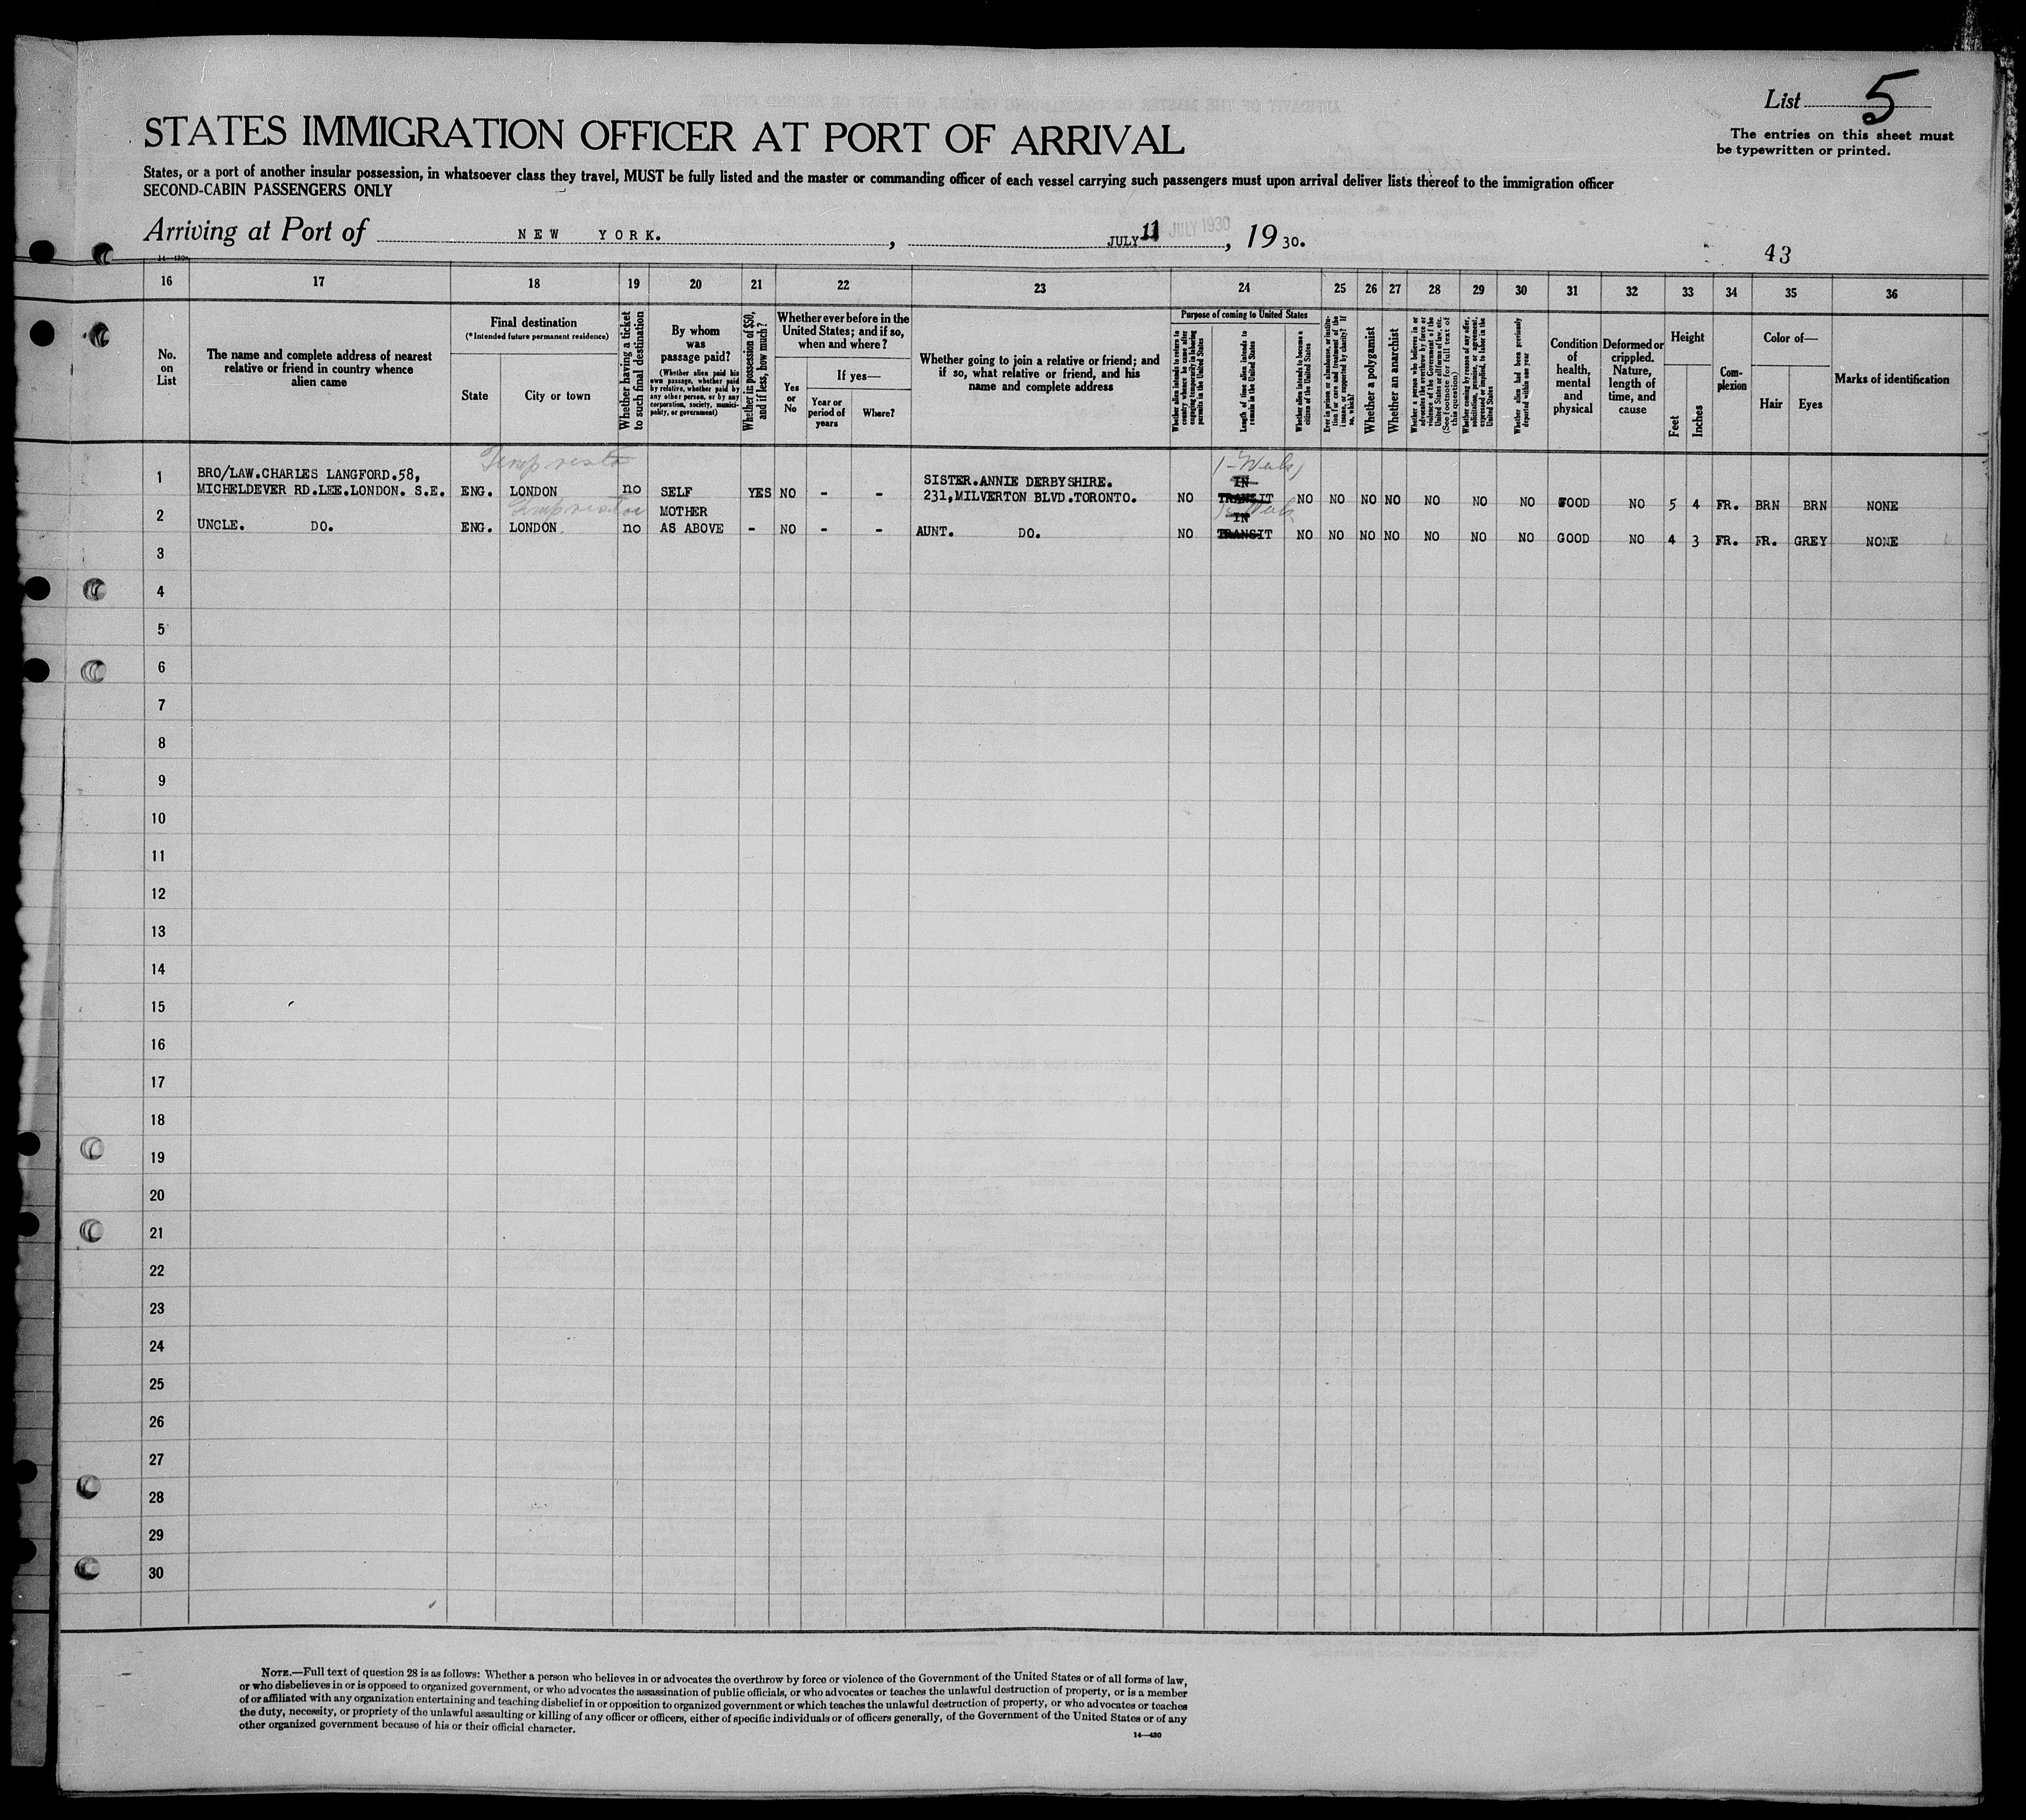 List 5
The entries on this sheet must
be typewritten or printed.
STATES IMMIGRATION OFFICER AT PORT OF ARRIVAL
States, or a port of another insular possession, in whatsoever class they travel, MUST be fully listed and the master or commanding officer of each vessel carrying such passengers must upon arrival deliver lists thereof to the immigration officer
SECOND-CABIN PASSENGERS ONLY
Arriving at Port of NEW YORK. , JULY 11 JULY 1930 , 19 30.
43
16 17 18 19 20 21 22 23 24 25 26 27 28 29 30 31 32 33 34 35 36
No.
on
List
The name and complete address of nearest
relative or friend in country whence
alien came
Final destination
(*Intended future permanent residence)
State
City or town
Whether having a ticket
to such final destination
By whom
was
passage paid?
(Whether alien paid his
own passage, whether paid
by relative, whether paid by
any other person, or by any
corporation, society, munici-
pality, or government)
Whether in possession of $50,
and if less, how much?
Whether ever before in the
United States; and if so,
when and where?
Yes
or
No
If yes—
Year or
period of
years
Where?
Whether going to join a relative or friend; and
if so, what relative or friend, and his
name and complete address
Purpose of coming to United States
Whether alien intends to return to
country whence he came after
engaging temporarily in laboring
pursuits in the United States
Length of time alien intends to
remain in the United States
Whether alien intends to become a
citizen of the United States
Ever in prison or almshouse, or institu-
tion for care and treatment of the
insane, or supported by charity? If
so, which?
Whether a polygamist
Whether an anarchist
Whether a person who believes in or
advocates the overthrow by force or
violence of the Government of the
United States or all forms of law, etc.
(See footnote for full text of
this question)
Whether coming by reason of any offer,
solicitation, promise, or agreement,
expressed or implied, to labor in the
United States
Whether alien had been previously
deported within one year
Condition
of
health,
mental
and
physical
Deformed or
crippled.
Nature,
length of
time, and
cause
Height
Feet
Inches
Com-
plexion
Color of—
Hair
Eyes
Marks of identification
1 BRO/LAW.CHARLES LANGFORD.58,
MICHELDEVER RD.LEE.LONDON. S.E. ENG. LONDON no SELF YES NO - - SISTER.ANNIE DERBYSHIRE.
231,MILVERTON BLVD.TORONTO. NO IN
TRANSIT NO NO NO NO NO NO NO GOOD NO 5 4 FR. BRN BRN NONE
2 UNCLE. DO. ENG. LONDON no MOTHER
AS ABOVE - NO - - AUNT. DO. NO IN
TRANSIT NO NO NO NO NO NO NO GOOD NO 4 3 FR. FR. GREY NONE
3
4
5
6
7
8
9
10
11
12
13
14
15
16
17
18
19
20
21
22
23
24
25
26
27
28
29
30
NOTE.—Full text of question 28 is as follows: Whether a person who believes in or advocates the overthrow by force or violence of the Government of the United States or of all forms of law,
or who disbelieves in or is opposed to organized government, or who advocates the assassination of public officials, or who advocates or teaches the unlawful destruction of property, or is a member
of or affiliated with any organization entertaining and teaching disbelief in or opposition to organized government or which teaches the unlawful destruction of property, or who advocates or teaches
the duty, necessity, or propriety of the unlawful assaulting or killing of any officer or officers, either of specific individuals or of officers generally, of the Government of the United States or of any
other organized government because of his or their official character.
14—430